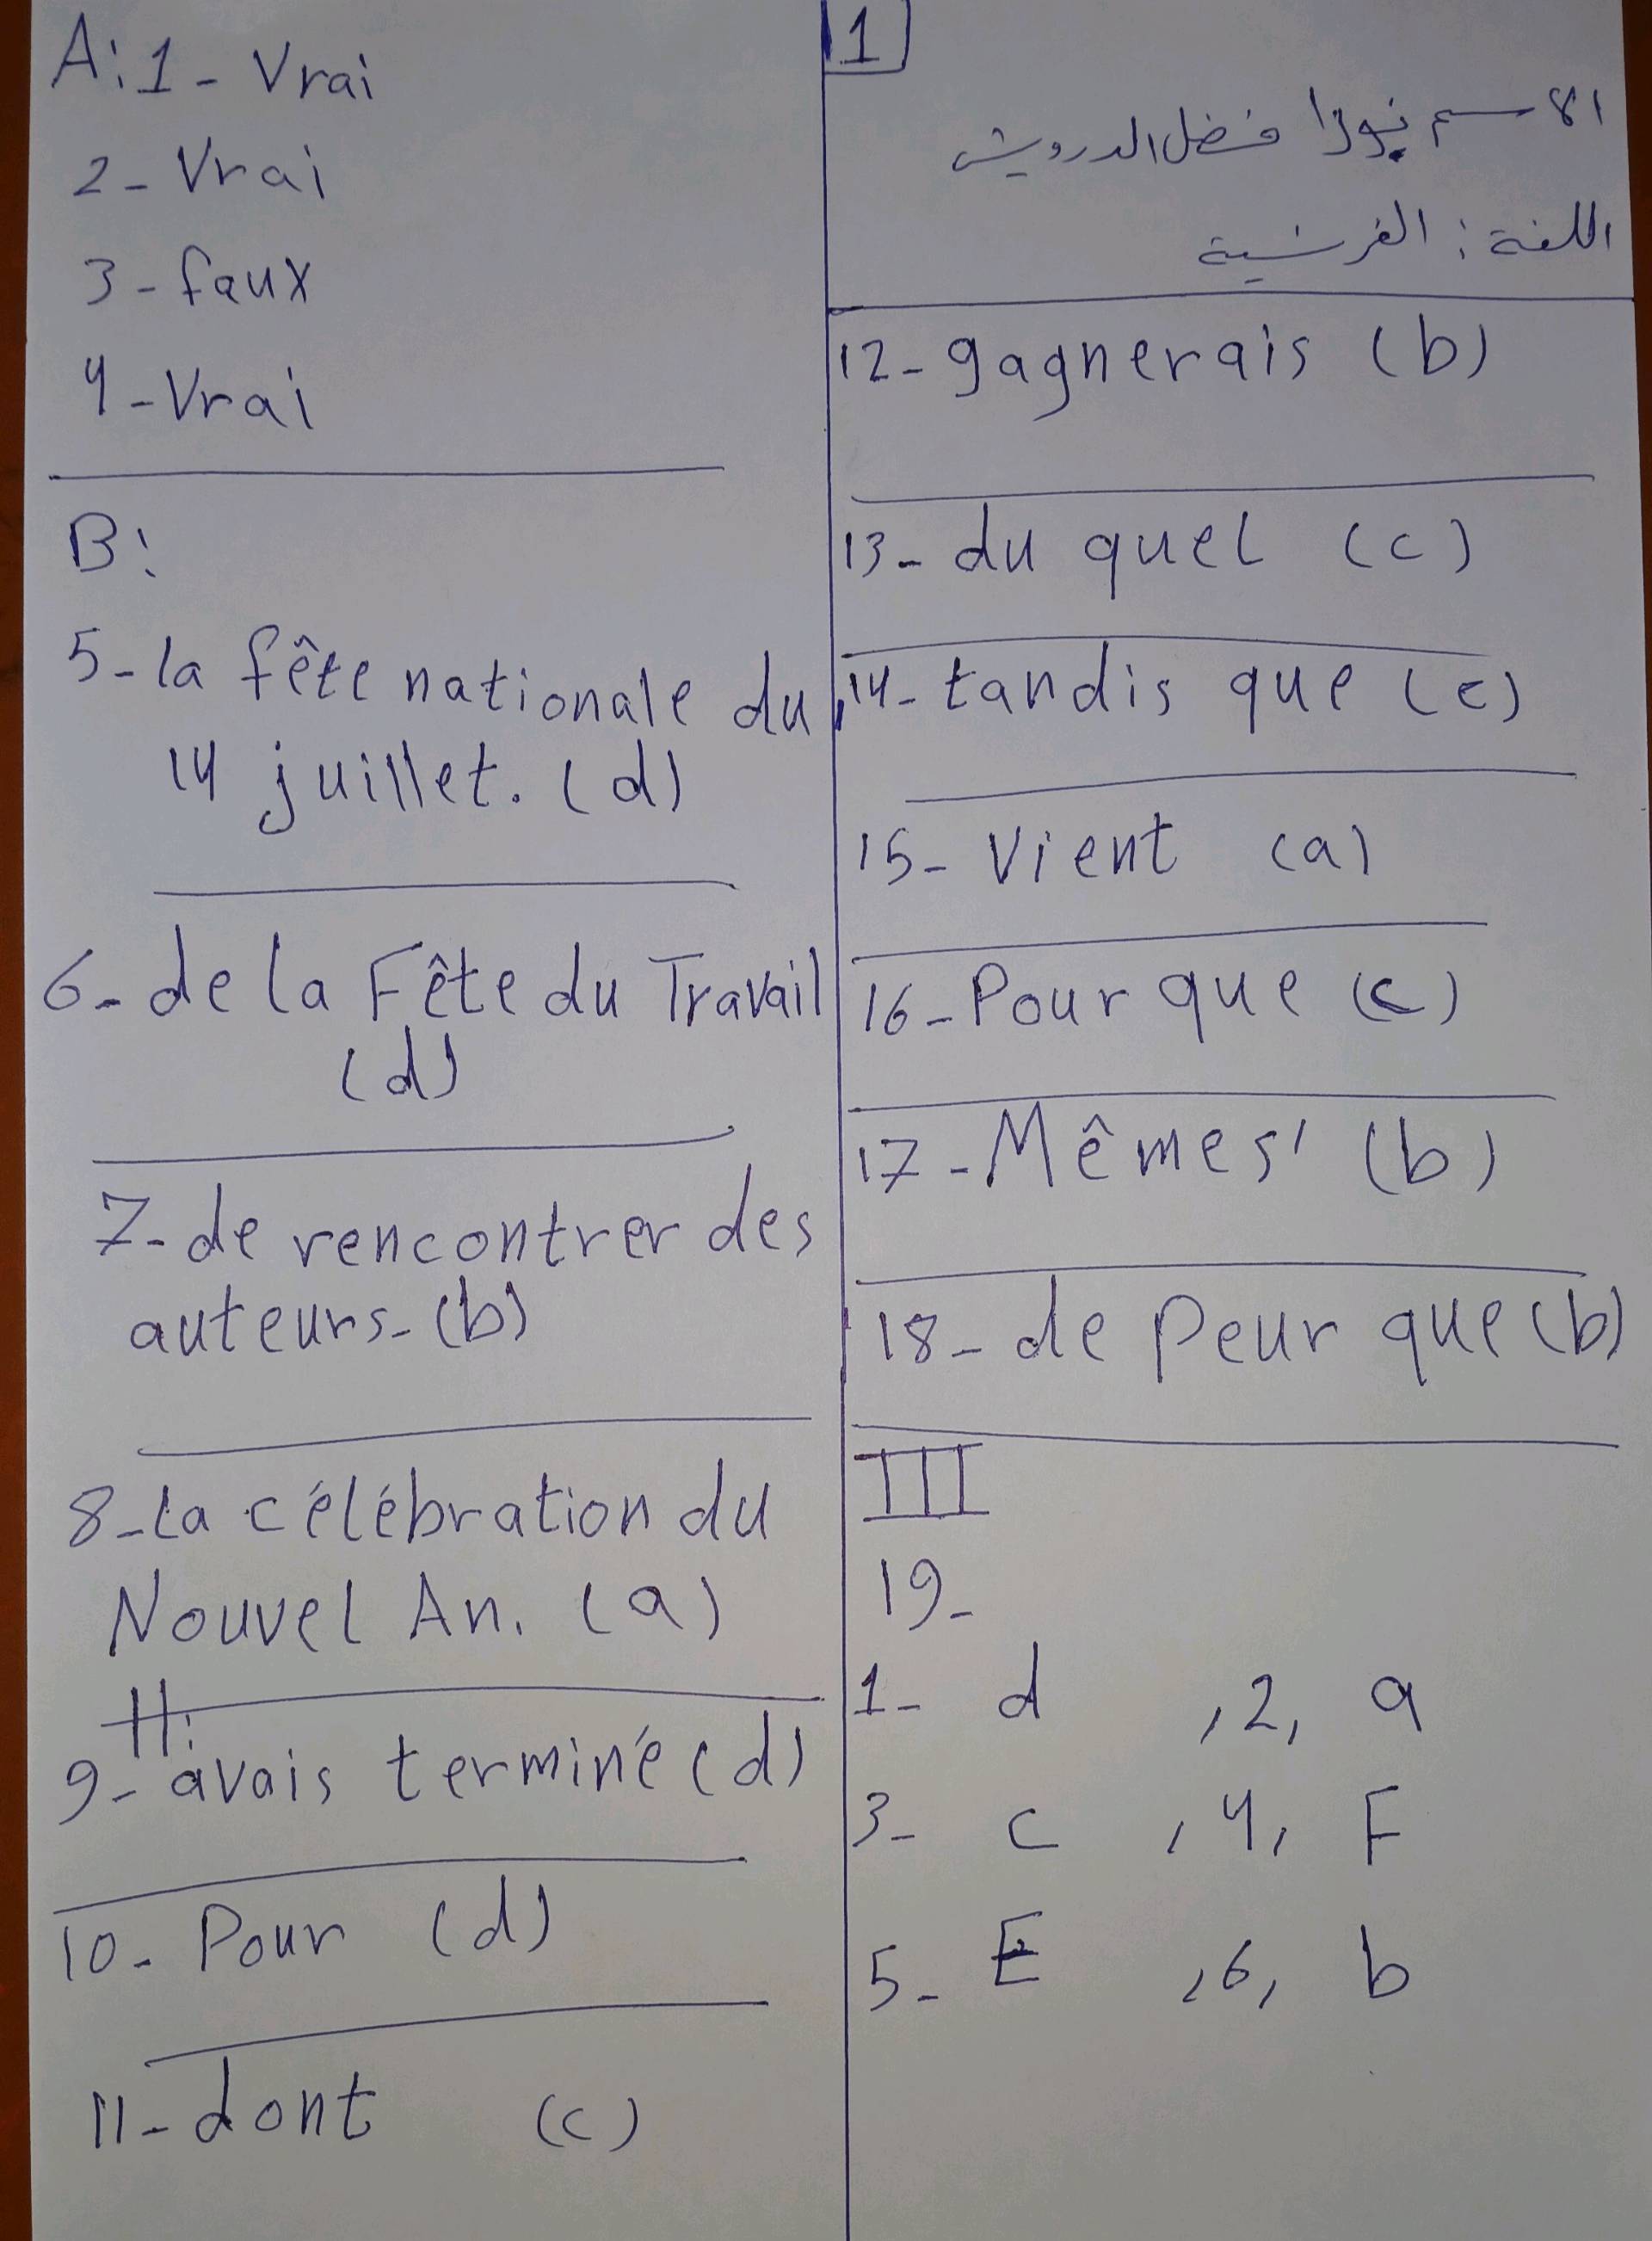 A: 1 - Vrai
2 - Vrai
3 - faux
4 - Vrai
B:
5 - la fête nationale du
14 juillet. (d)
6 - de la Fête du Travail
(d)
7 - de rencontrer des
auteurs - (b)
8 - la célébration du
Nouvel An. (a)
II:
9 - avais terminé (d)
10 - Pour (d)
11 - dont (c)
1
الاسم فضل الدرويش
اللغة : الفرنسية
12 - gagnerais (b)
13 - du quel (c)
14 - tandis que (c)
15 - Vient (a)
16 - Pour que (c)
17 - Mêmes' (b)
18 - de peur que (b)
III
19 -
1 - d , 2, a
3 - c , 4, F
5 - E , 6, b